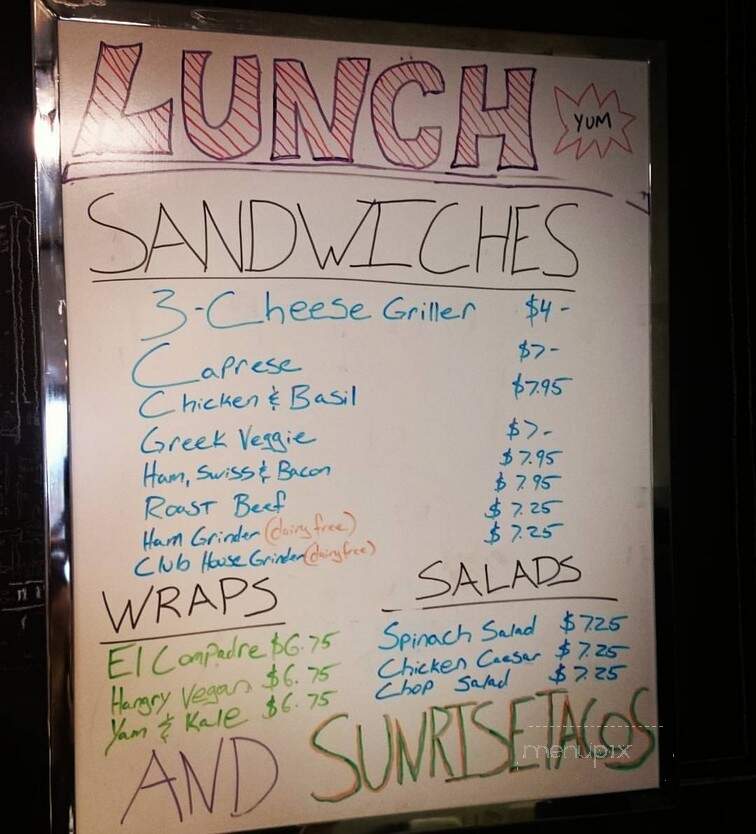 LUNCH
YUM
SANDWICHES
3-Cheese Griller $4-
Caprese $7-
Chicken & Basil $7.95
Greek Veggie $7-
Ham, Swiss & Bacon $7.95
Roast Beef $7.95
Ham Grinder (dairy free) $7.25
Club House Grinder (dairy free) $7.25
WRAPS
El Compadre $6.75
Hangry Vegan $6.75
Yam & Kale $6.75
SALADS
Spinach Salad $7.25
Chicken Caesar $7.25
Chop Salad $7.25
AND SUNRISE TACOS
menupix